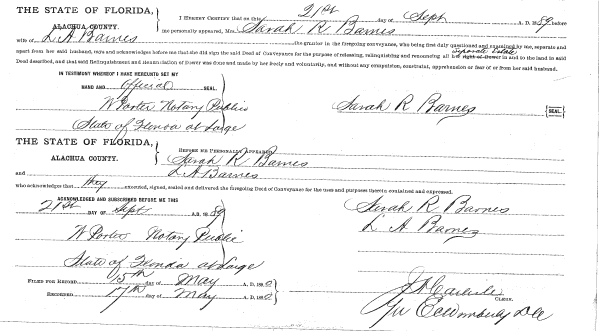 THE STATE OF FLORIDA,
ALACHUA COUNTY.
I HEREBY CERTIFY that on this 21st day of Sept A. D. 1889, before
me personally appeared, Mrs. Sarah R Barnes
wife of L A Barnes the grantor in the foregoing conveyance, who being first duly questioned and examined by me, separate and
apart from her said husband, says and acknowledges before me that she did sign the said Deed of Conveyance for the purpose of releasing, relinquishing and renouncing all her right of Dower separate Estate in and to the land in said
Deed described, and that said Relinquishment and Renunciation of Dower was done and made by her freely and voluntarily, and without any compulsion, constraint, apprehension or fear of or from her said husband.
IN TESTIMONY WHEREOF I HAVE HEREUNTO SET MY
HAND AND Official SEAL.
W Porter Notary Public
State of Florida at Large
Sarah R Barnes [SEAL]
THE STATE OF FLORIDA,
ALACHUA COUNTY.
BEFORE ME PERSONALLY APPEARED
Sarah R Barnes
and L A Barnes
who acknowledges that they executed, signed, sealed and delivered the foregoing Deed of Conveyance for the uses and purposes therein contained and expressed.
ACKNOWLEDGED AND SUBSCRIBED BEFORE ME THIS
21st DAY OF Sept A. D. 1889
Sarah R Barnes
L A Barnes
W Porter Notary Public
State of Florida at Large
FILED FOR RECORD 15th day of May A. D. 1890
RECORDED 17th day of May A. D. 1890
J A Carlisle
CLERK.